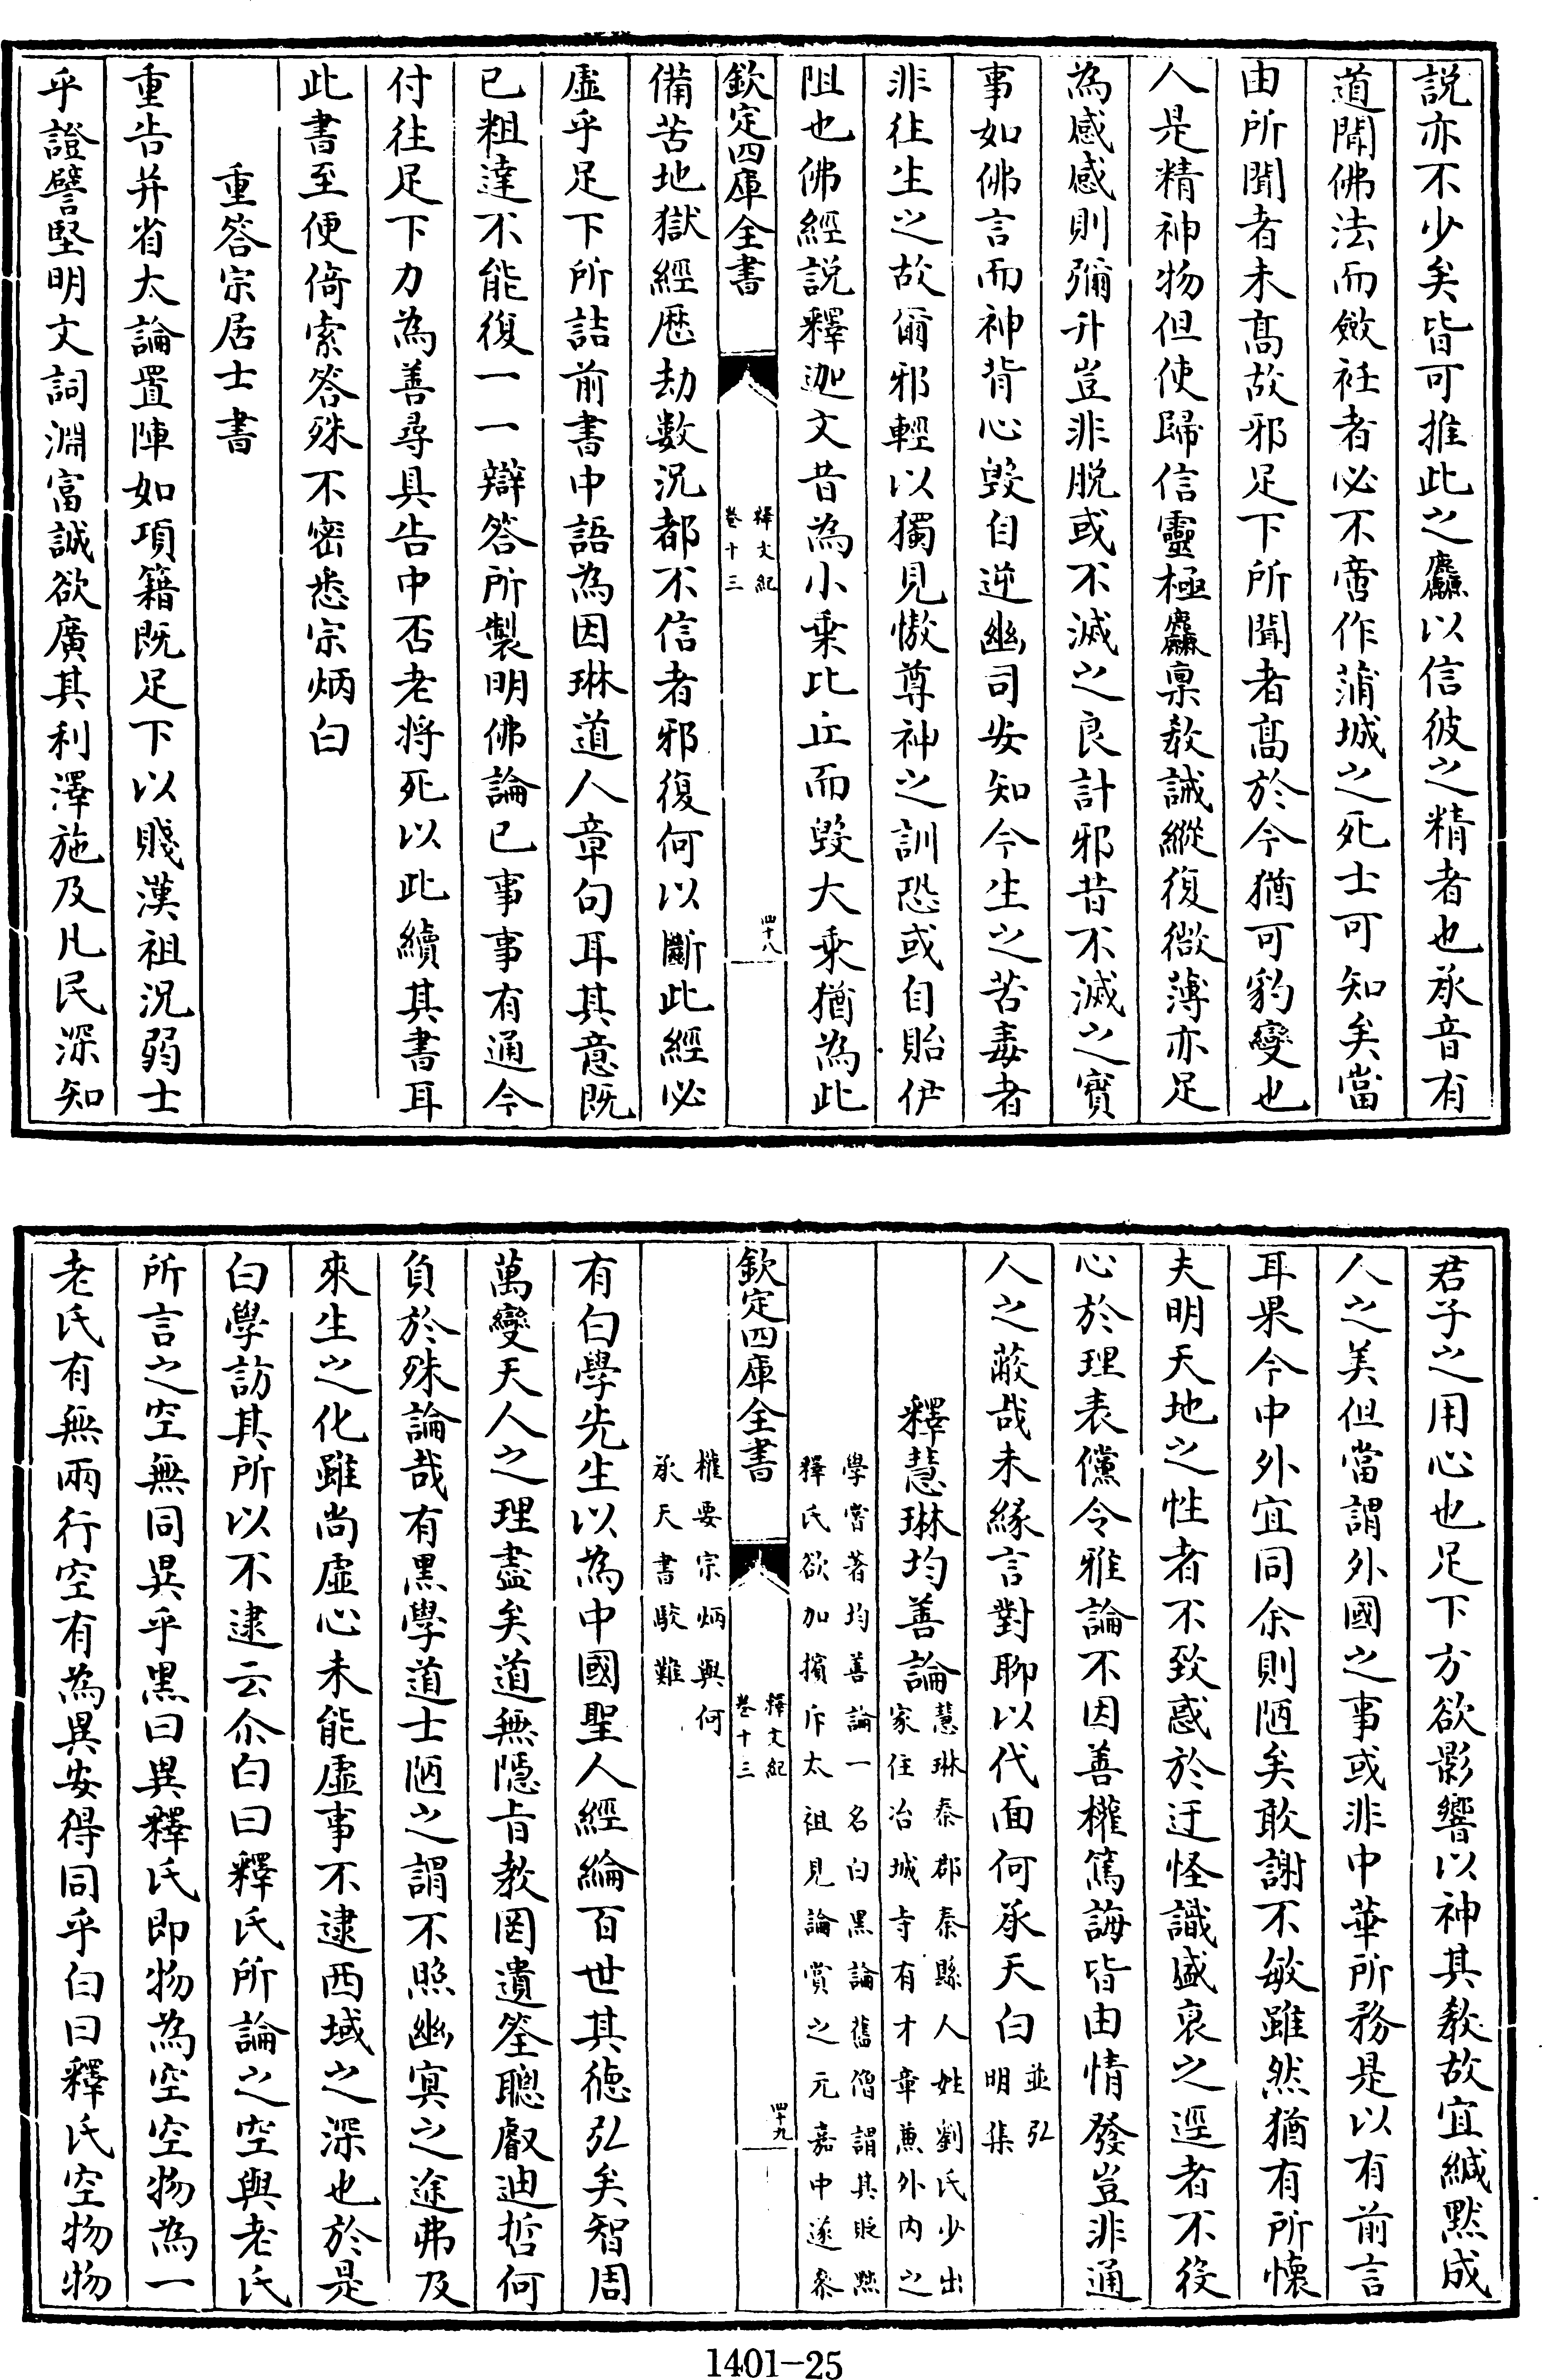 説亦不少矣皆可推此之麤以信彼之精者也承音有
道聞佛法而斂衽者必不啻作蒲城之死士可知矣當
由所聞者未髙故邪足下所聞者髙於今猶可豹變也
人是精神物但使歸信靈極麤禀敎誡縱復微薄亦足
為感感則彌升豈非脱或不滅之良計邪昔不滅之實
事如佛言而神背心毁自逆幽司安知今生之苦毒者
非徃生之故爾邪輕以獨見慠尊神之訓恐或自貽伊
阻也佛經説釋迦文昔為小乗比丘而毁大乗猶為此
欽定四庫全書
釋文紀
卷十三
四十八
備苦地獄經歴劫數況都不信者邪復何以斷此經必
虚乎足下所詰前書中語為因琳道人章句耳其意既
已粗達不能復一一辯答所製明佛論已事事有通今
付徃足下力為善尋具告中否老將死以此續其書耳
此書至便倚索答殊不密悉宗炳白
重答宗居士書
重告并省太論置陣如項籍既足下以賤漢祖況弱士
乎證譬堅明文詞淵富誠欲廣其利澤施及凡民深知
君子之用心也足下方欲影響以神其敎故宜緘黙成
人之美但當謂外國之事或非中華所務是以有前言
耳果今中外宜同余則陋矣敢謝不敏雖然猶有所懷
夫明天地之性者不致惑於迂怪識盛衰之逕者不役
心於理表儻令雅論不因善權篤誨皆由情發豈非通
人之蔽哉未縁言對聊以代面何承天白
並弘
明集
釋慧琳均善論
慧琳秦郡秦縣人姓劉氏少出
家住冶城寺有才章兼外内之
學嘗著均善論一名白黑論舊僧謂其貶黜
釋氏欲加擯斥太祖見論賞之元嘉中遂叅
欽定四庫全書
釋文紀
卷十三
四十九
權要宗炳與何
承天書駮難
有白學先生以為中國聖人經綸百世其徳弘矣智周
萬變天人之理盡矣道無隠㫖教罔遺筌聰叡迪哲何
負於殊論哉有黑學道士陋之謂不照幽冥之途弗及
來生之化雖尚虚心未能虚事不逮西域之深也於是
白學訪其所以不逮云尒白曰釋氏所論之空與老氏
所言之空無同異乎黑曰異釋氏即物為空空物為一
老氏有無兩行空有為異安得同乎白曰釋氏空物物
1401-25